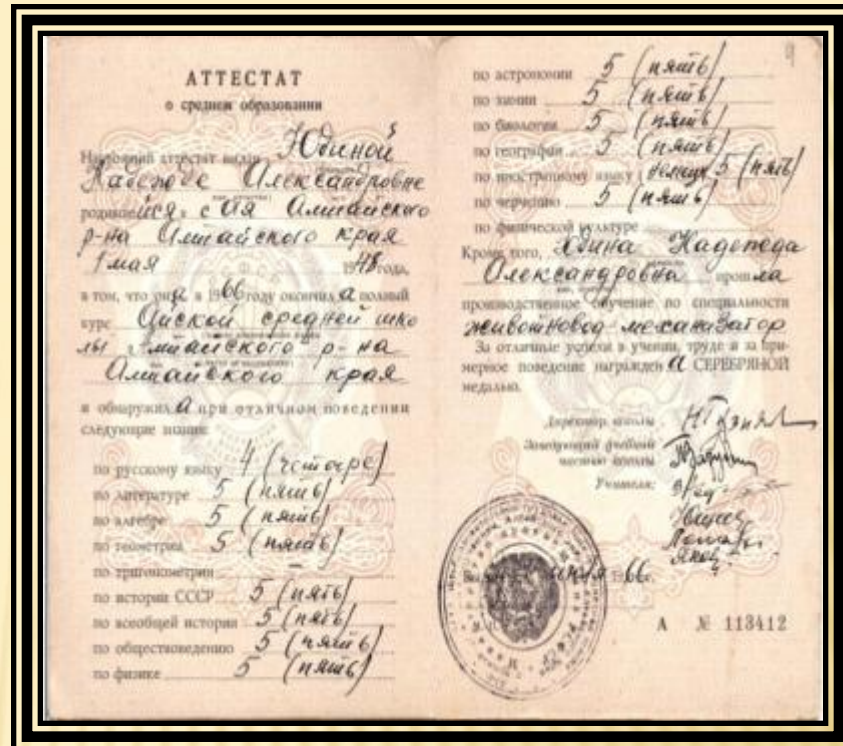 АТТЕСТАТ
о среднем образовании
Настоящий аттестат выдан Юдиной
Надежде Александровне
родившейся в с Ая Алтайского
р-на Алтайского края
1 мая 1948 года,
в том, что она в 1966 году окончила полный
курс Айской средней шко
лы Алтайского р-на
Алтайского края
и обнаружила при отличном поведении
следующие знания:
по русскому языку 4 (четыре)
по литературе 5 (пять)
по алгебре 5 (пять)
по геометрии 5 (пять)
по тригонометрии –
по истории СССР 5 (пять)
по всеобщей истории 5 (пять)
по обществоведению 5 (пять)
по физике 5 (пять)
9
по астрономии 5 (пять)
по химии 5 (пять)
по биологии 5 (пять)
по географии 5 (пять)
по иностранному языку (немецк) 5 (пять)
по черчению 5 (пять)
по физической культуре
Кроме того, Юдина Надежда
Александровна прошла
производственное обучение по специальности
животновод-механизатор
За отличные успехи в учении, труде и за при-
мерное поведение награждена СЕРЕБРЯНОЙ
медалью.
Директор школы
Заведующий учебной
частью школы
Учителя:
66 г.
А № 113412